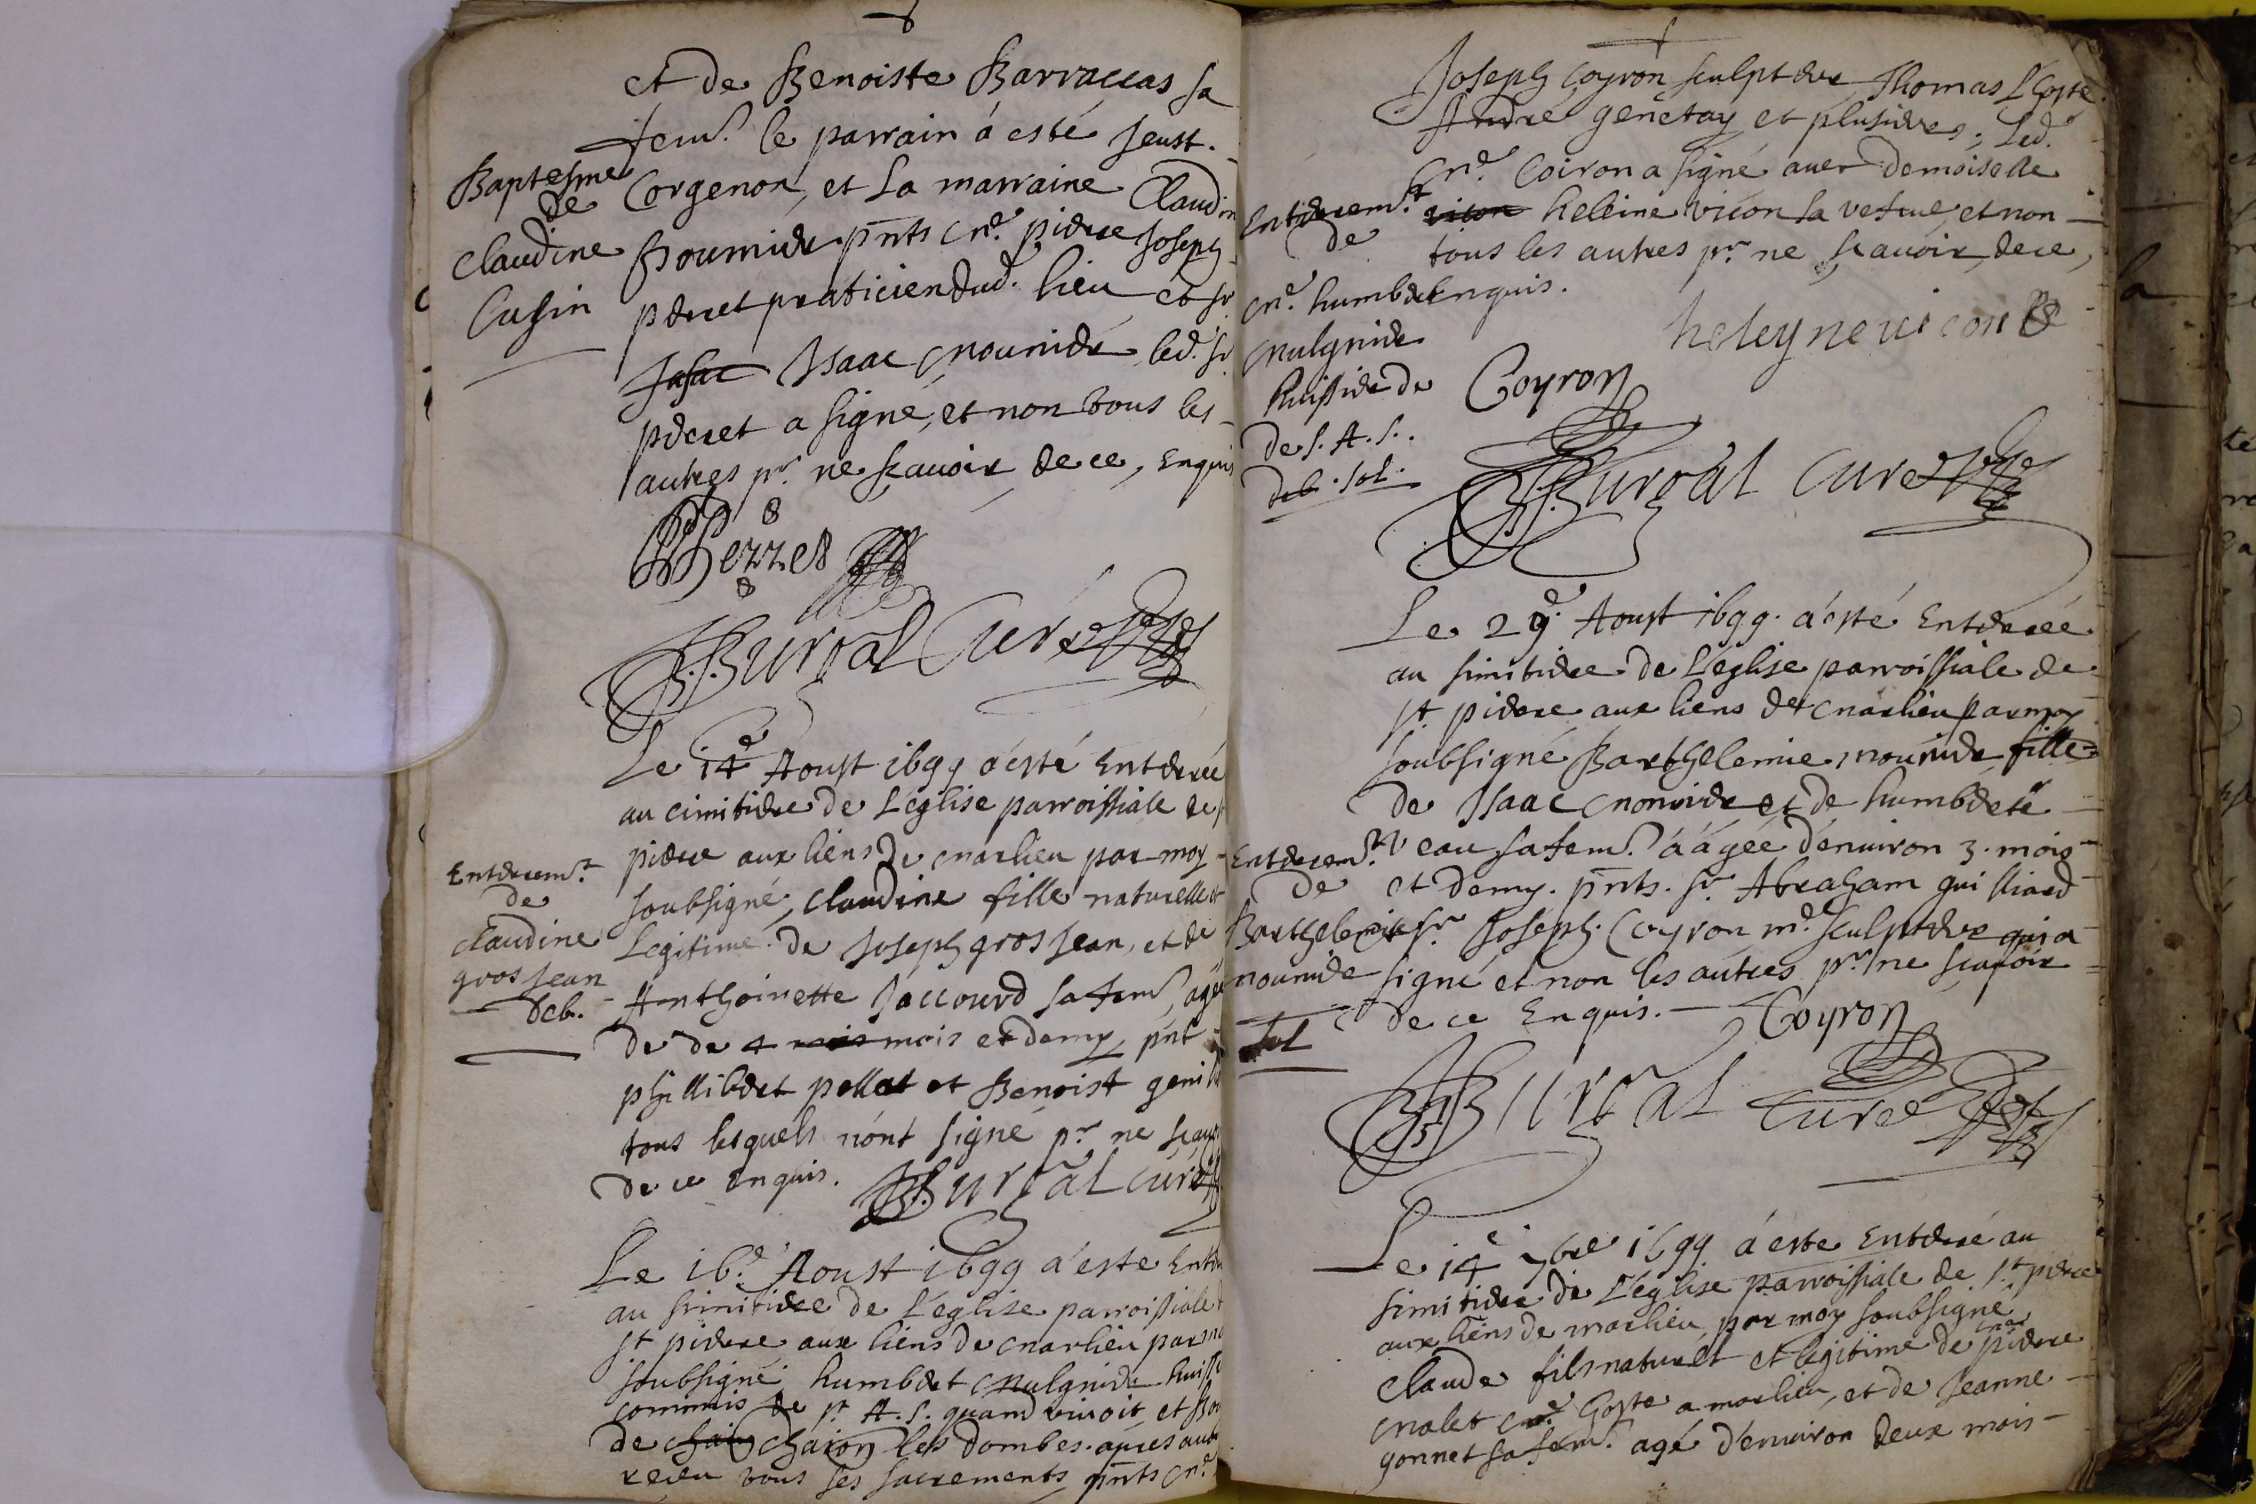 et de Benoiste Barraccas sa
fem. le parrain á esté Jeust.
Corgenon, et la marraine Claudin
Baptesme
de
claudine
Cusin
Mounier pnts Me. pierre Joseph
perret praticien dud. lieu et sr.
Jasac Isaac Mounier led. sr
perret a signé, et non tous les
autres pr. ne scavoir de ce, Enquis
Perret
Burgat Curé
Le 14e Aoust 1699 a esté Enterrée
au cimitiere de L'eglise parroissiale de
pierre aux liens de marlieu par moy
soubsigné, claudine fille naturelle et
Legitime de Joseph gros Jean, et de
Anthoinette Jaccourd sa fem, agée
de de 4 mois mois et demy, pnt
phillibert pellet et Benoist geni
tous lesquels n'ont signé pr. ne scavo
de ce Enquis. Burgat curé
Enterrem.t
de
claudine
gros Jean
deb.
Le 16e Aoust 1699 a esté Enter
au simitiere de L'eglise parroissiale
st pierre aux liens de marlieu par mo
soubsigné humbert Mulgnier huiss
commis de sr A. S. quand vivoit, et
de chain chaion les dombes. apres avo
receu tous ses sacrements, pnts Me.
Joseph Coyron sculpteur Thomas L'Coste
André genetay et plusieurs, Led.
Me. Coiron a signé avec demoiselle
vicon heleine vicon sa vefve, et non
tous les autres pr. ne scavoir, de ce,
Enquis.
Enterrem.t
de
Me. humbert
Mulgnier
huissier de
de S. A. S.
deb. sol.
heleyne vicon
Coyron
Burgat Curé
Le 29e Aoust 1699. a esté Enterrée
au simitiere de L'eglise parroissiale de
st. pierre aux liens de marlieu par moy
soubsigné Barthelemie mounier fille
de Isaac mounier et de humberte
veau sa fem. áâgée d'environ 3. mois
et demy. pnts. sr Abraham guilliard
sr Joseph. Coyron me. sculpteur qui a
signé et non les autres pr ne scavoir
de ce Enquis.
Enterrem.t
de
Barthelemie
mounier
sol
Coyron
Burgat curé
Le 14e 7bre 1699 a esté Enterré au
simitiere de L'eglise parroissiale de st. pierre
aux liens de marlieu, par moy soubsigné
claude fils naturel et legitime de pierre
malet Me. hoste a marlieu, et de Jeanne
gonnet sa fem. agé d'environ deux mois